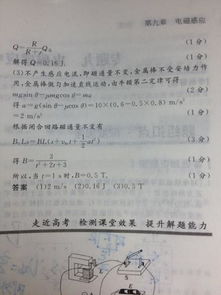 第九章 电磁感应
Q=R/(R+r)Q总 (1分)
解得Q=0.16 J (1分)
(3)不产生感应电流,即磁通量不变,金属棒不受安培力作
用,金属棒做匀加速直线运动,由牛顿第二定律可得
mgsin θ-μmgcos θ=ma (2分)
得a=g(sin θ-μcos θ)=10×(0.6-0.5×0.8) m/s²
=2 m/s² (1分)
根据闭合回路磁通量不变有
B₀Ls=BL(s+v₀t+½at²) (3分)
得B=3/(t²+2t+3) (1分)
所以,当t=1 s时,B=0.5 T. (1分)
答案 (1)2 m/s (2)0.16 J (3)0.5 T
走近高考 检测课堂效果 提升解题能力
E